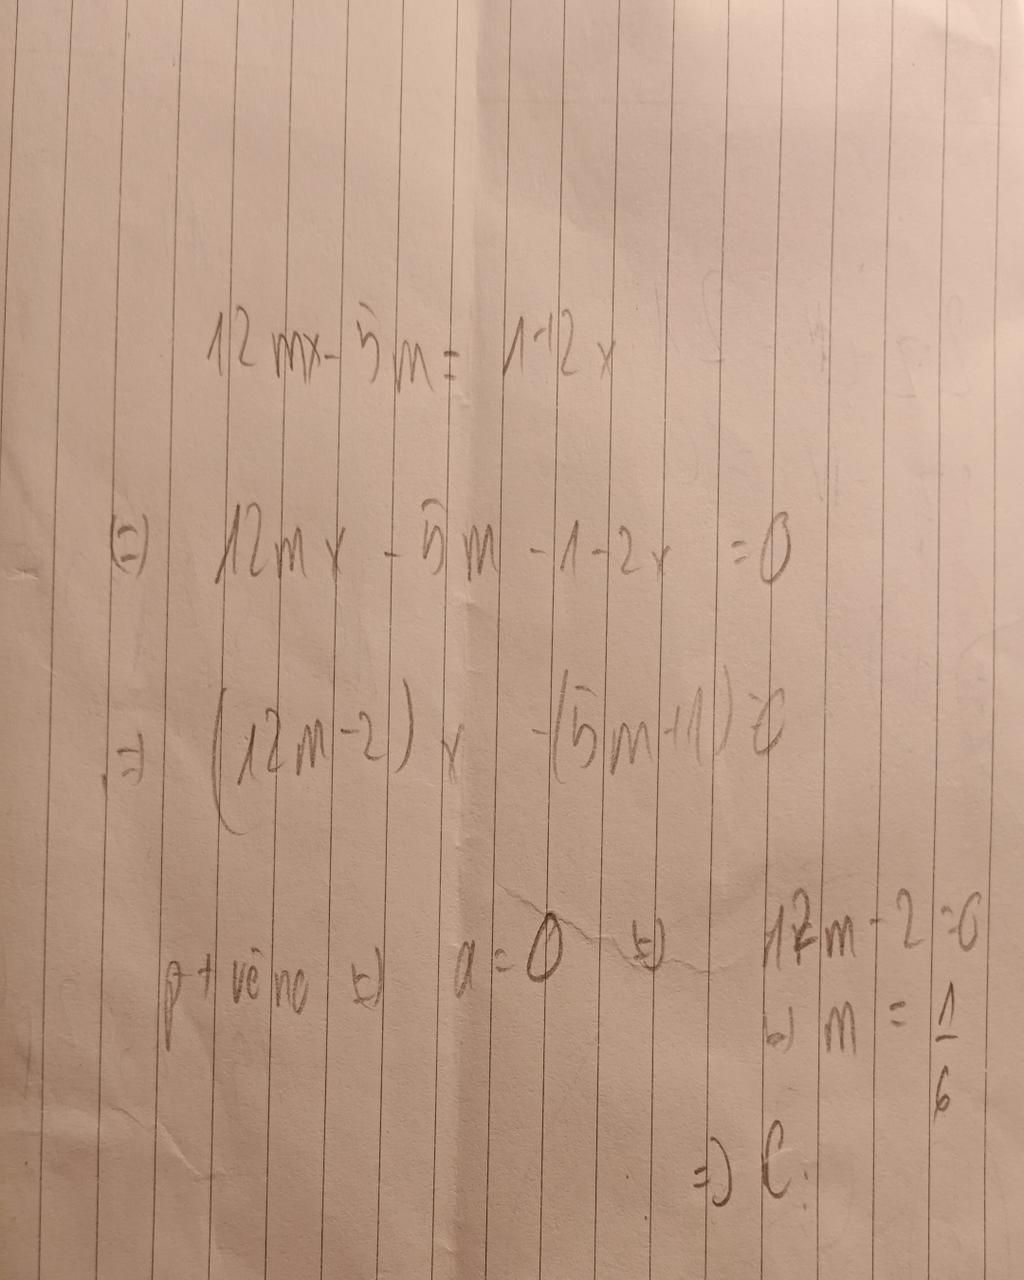 12mx - 5m = 1+2x
⇔ 12mx - 5m - 1 - 2x = 0
⇔ (12m - 2)x - (5m + 1) = 0
pt vô no ⇔ a = 0 ⇔ 12m - 2 = 0
⇔ m = 1/6
⇒ C.